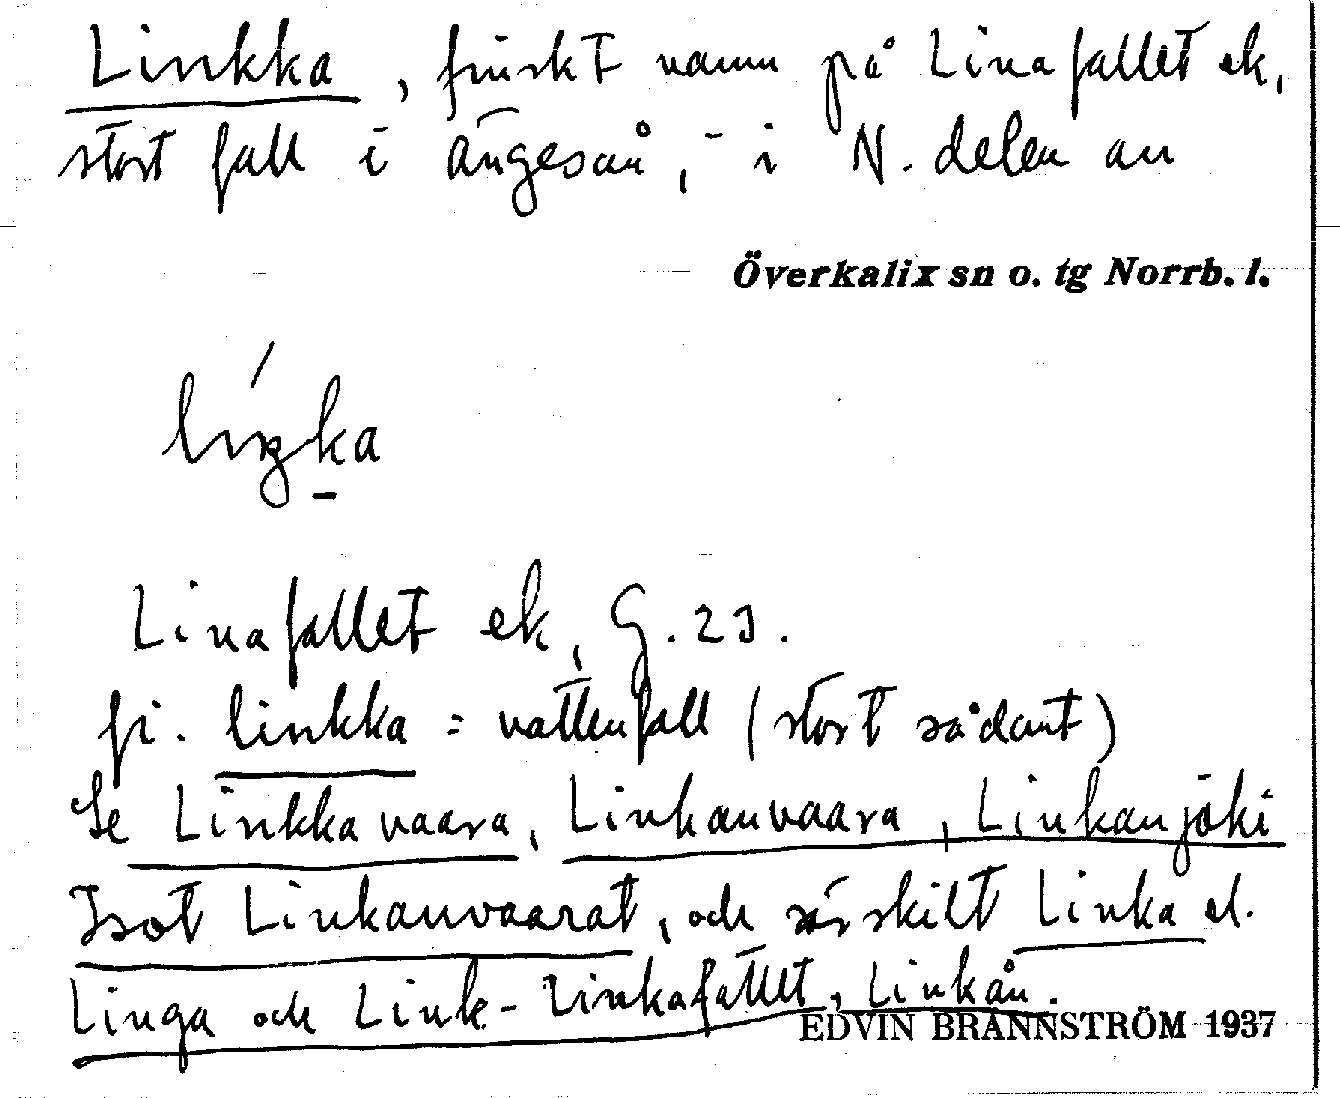 Linkka, finskt namn på Linafallet ek,
stort fall i Ängesån, i N. delen av
Överkalix sn o. tg Norrb. l.
líŋka
Linafallet ek, G. 23.
fi. linkka = vattenfall (stort sådant)
Se Linkkavaara, Linkanvaara, Linkanjoki
Isot Linkanvaarat, och särskilt Linka el.
Linga och Link- Linkafallet, Linkån.
EDVIN BRÄNNSTRÖM 1937